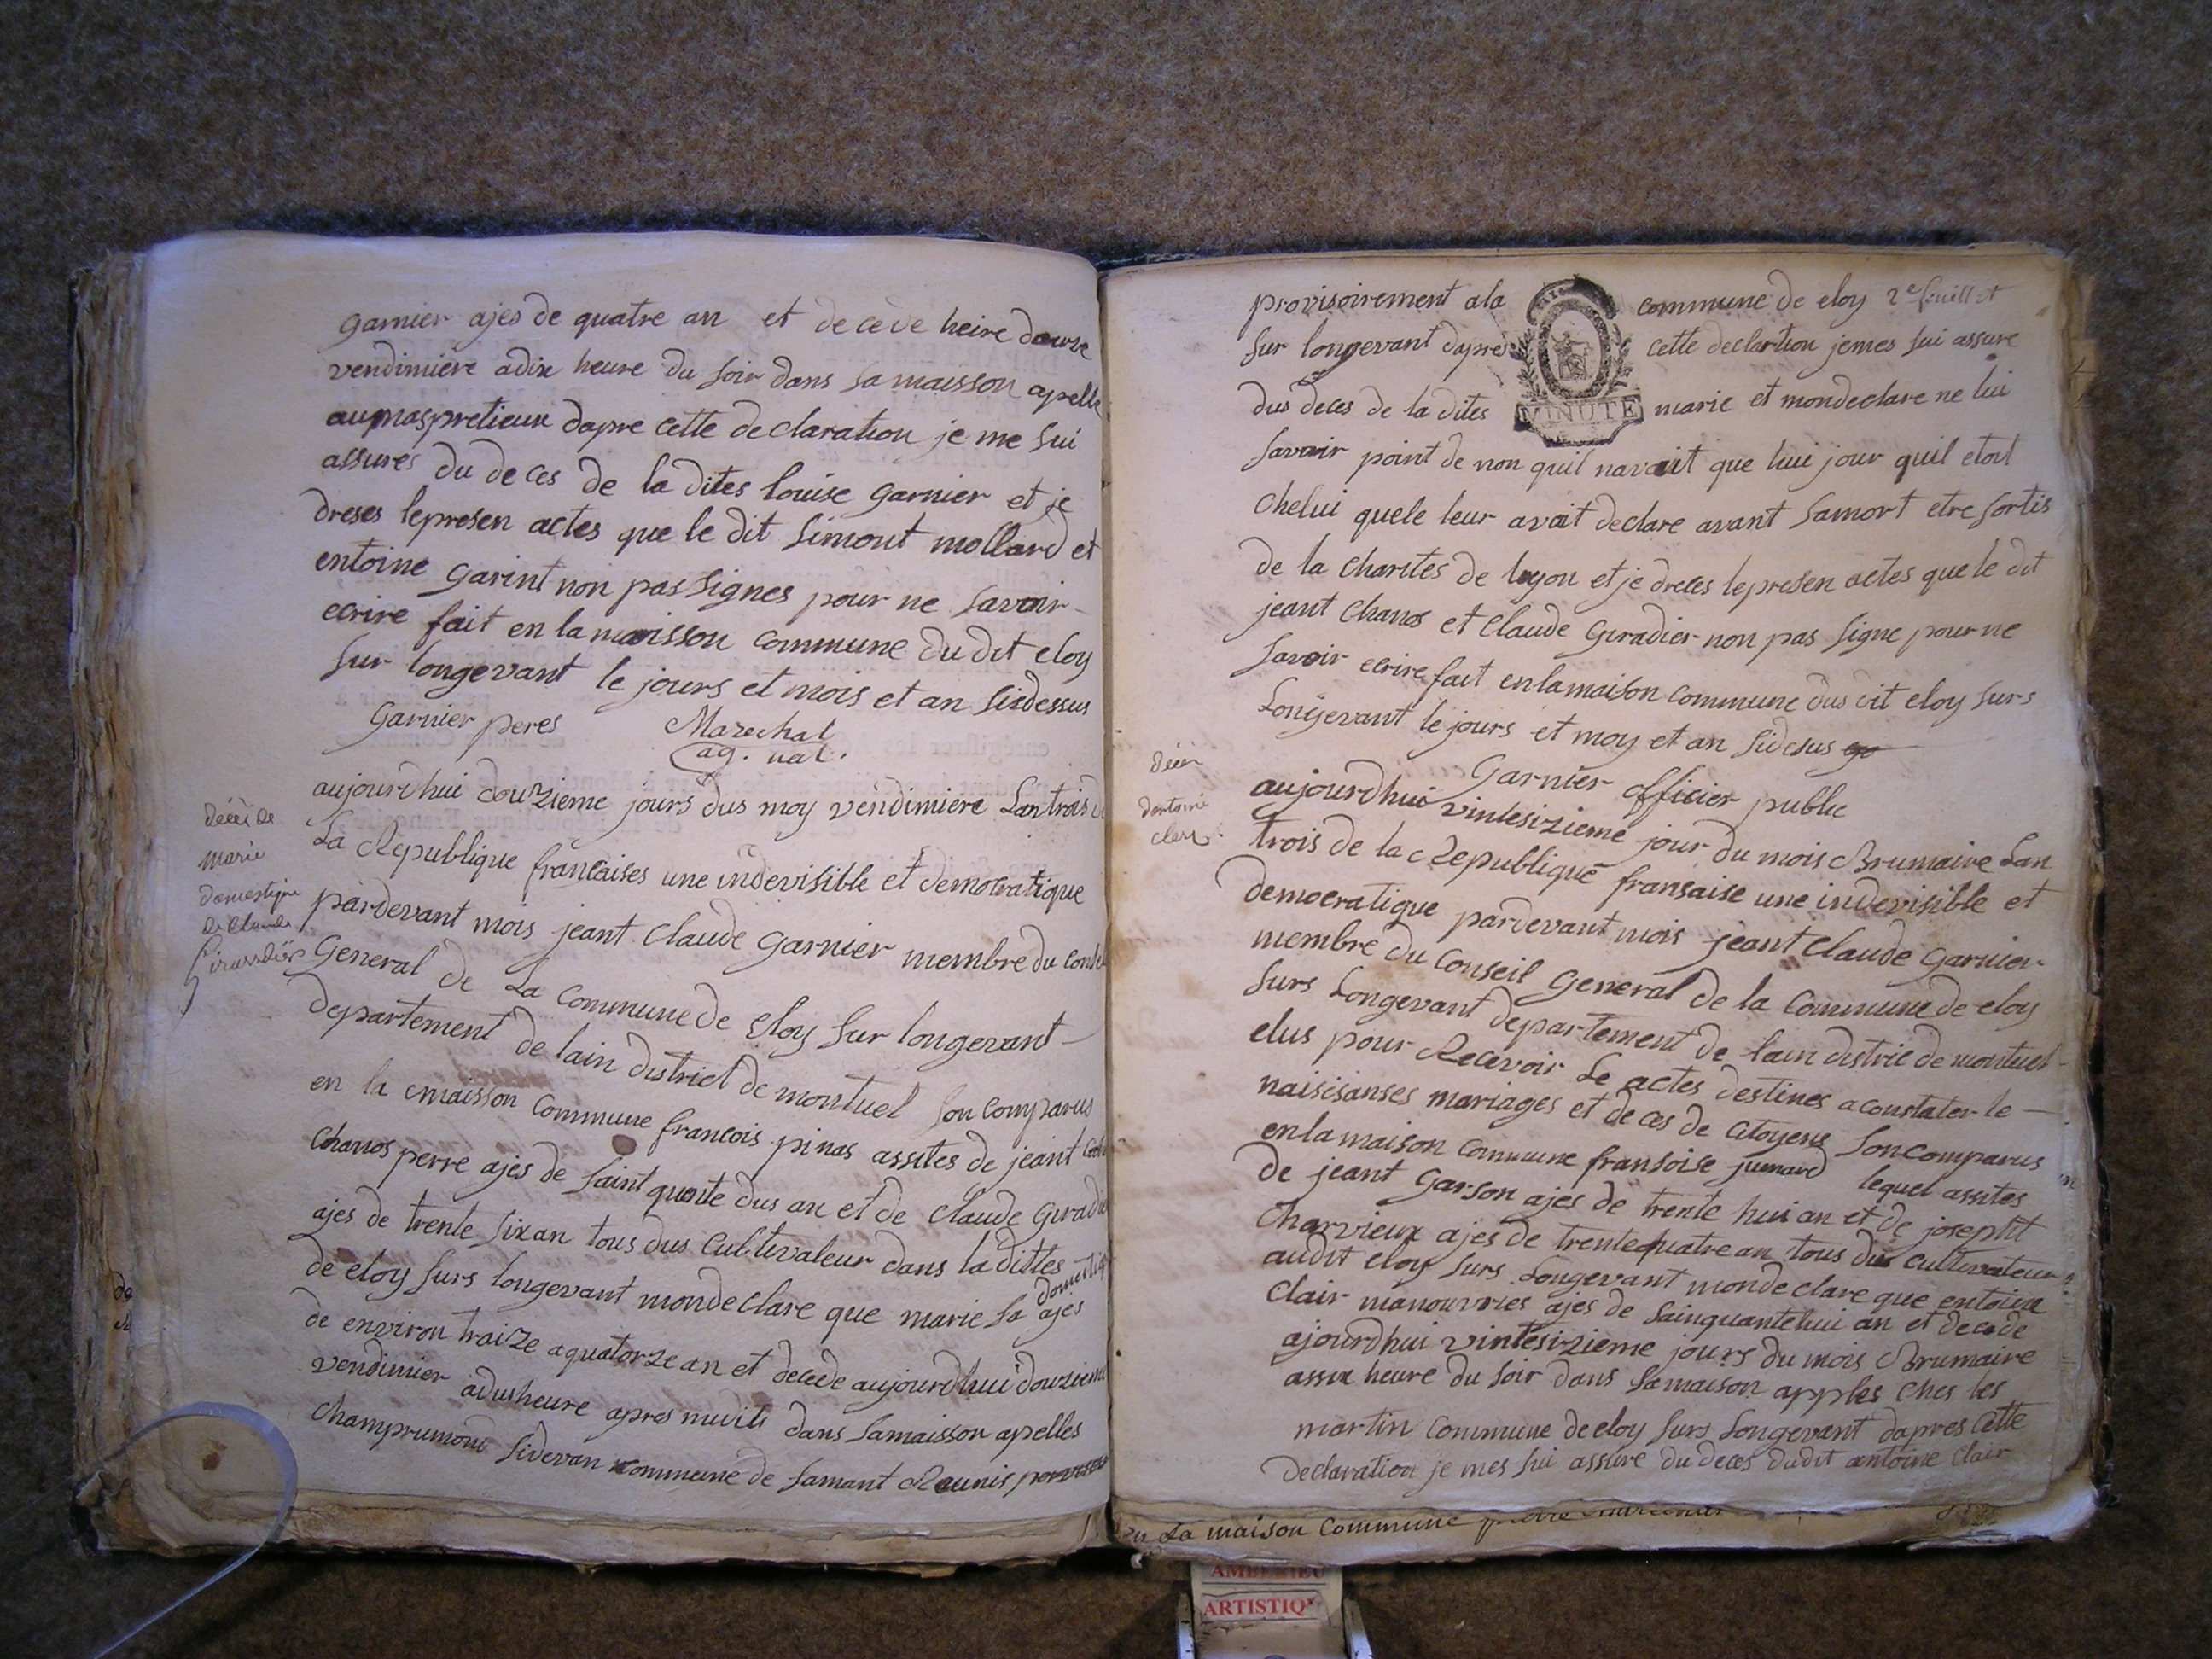 garnier ajes de quatre an et decede heire douze
vendimiere adix heure du soir dans sa maisson apelle
aumaspretieux dapre cette declaration je me sui
assures du deces de la dites louise garnier et je
dreses lepresen actes que le dit simont mollard et
entoine garint non pas signes pour ne savoir
ecrire fait en la maisson commune du dit eloy
sur longevant le jours et mois et an sidessus
garnier peres Marechal
ag. nat.
décès de
marie
domestique
de Claude
Girardier
aujourdhui douzieme jours dus moy vendimiere Lan trois
La Republique francaises une indevisible et democratique
pardevant mois jeant Claude garnier membre du
General de La Commune de Eloy sur longevant
departement de lain district de montuel son comparus
en la maisson Commune francois pinas assites de jeant
Chanos perre ajes de saint quante dus an et de Claude
ajes de trente six an tous dus Cultivateur dans la dittes
de eloy surs longevant mondeclare que marie sa domestiq ajes
de environ traize aquatorze an et decede aujourdhui douzieme
vendimier adusheure apres muiti dans samaisson apelles
Champrumond sidevan commune de samant Reunis
provisoirement ala commune de eloy 2e feuillet
sur longevant dapres cette declartion jemes sui assure
dus deces de la dites marie et mondeclare ne lui
MINUTE
savoir point de non quil navait que hui jour quil etoit
chelui quele leur avait declare avant samort etre sortis
de la charites de leyon et je dreces lepresen actes que le dit
jeant Chanos et Claude Giradier non pas signe pour ne
savoir ecrire fait en lamaison commune dus dit eloy surs
Longevant le jours et moy et an sidesus
Garnier officier public
décès
dantoine
clerc
aujourdhui vintesizieme jour du mois Brumaire Lan
trois de la Republique fransaise une indevisible et
democratique pardevant mois jeant Claude garnier
membre du Conseil General de la Commune de eloy
surs Longevant departement de lain distric de montuel
elus pour Recevoir Le actes destines a constater le
naisisanses mariages et deces de Citoyens son comparus
en la maison Commune fransoise jumard lequel assites
de jeant garson ajes de trente hui an et de josepht
Charvieux ajes de trentequatre an tous dus cultivateur
audit eloy surs Longevant mondeclare que entoine
Clair manouvries ajes de sainquantehui an et decede
ajourdhui vintesizieme jours du mois Brumaire
assix heure du soir dans samaison apples ches les
martin Commune de eloy surs Longevant dapres cette
declaration je mes sui assure du deces dudit antoine Clair
La maison Commune pierre
AMBERIEU
ARTISTIQ